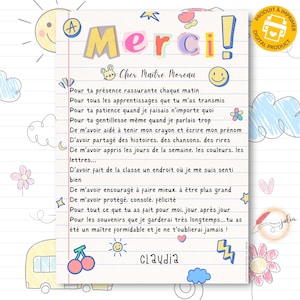 PRODUIT À IMPRIMER
DIGITAL PRODUCT
A+
Merci!
Cher Maître Moreau
Pour ta présence rassurante chaque matin
Pour tous les apprentissages que tu m'as transmis
Pour ta patience quand je faisais n'importe quoi
Pour ta gentillesse même quand je parlais trop
De m'avoir aidé à tenir mon crayon et écrire mon prénom
D'avoir partagé des histoires, des chansons, des rires
De m'avoir appris les jours de la semaine, les couleurs, les
lettres...
D'avoir fait de la classe un endroit où je me suis senti
bien
De m'avoir encouragé à faire mieux, à être plus grand
De m'avoir protégé, consolé, félicité
Pour tout ce que tu as fait pour moi, jour après jour
Pour les souvenirs que je garderai très longtemps...tu as
été un maître formidable et je ne t'oublierai jamais !
Claudia